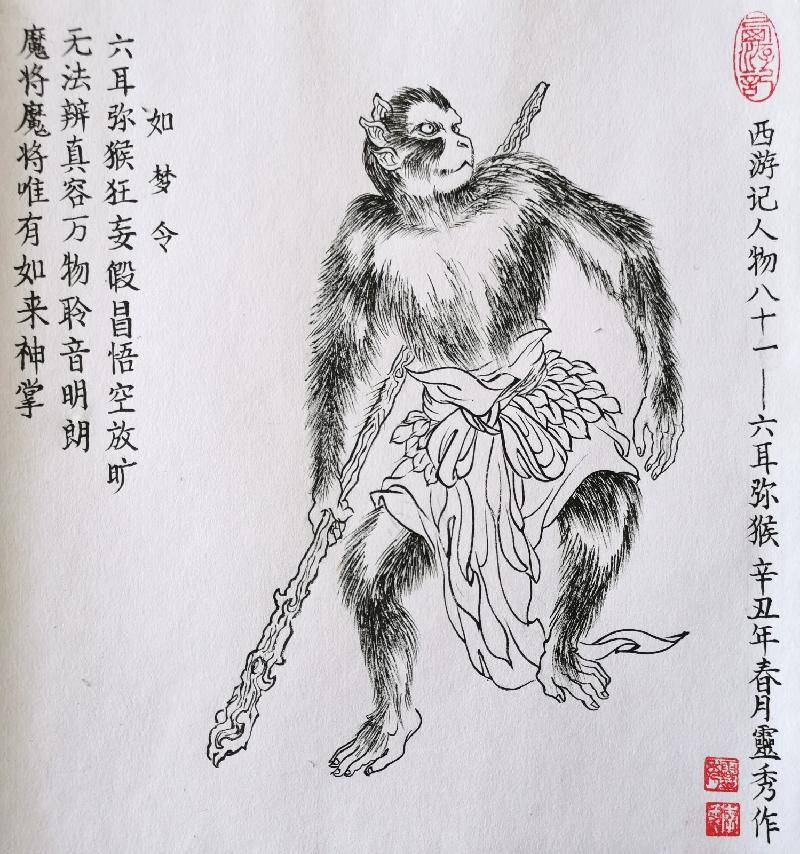 西游记人物八十一—六耳弥猴 辛丑年春月靈秀作
如梦令
六耳弥猴狂妄假昌悟空放旷
无法辨真容万物聆音明朗
魔将魔将唯有如来神掌